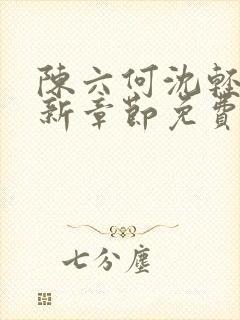 陳六何沈輕
新章節免費
七分塵